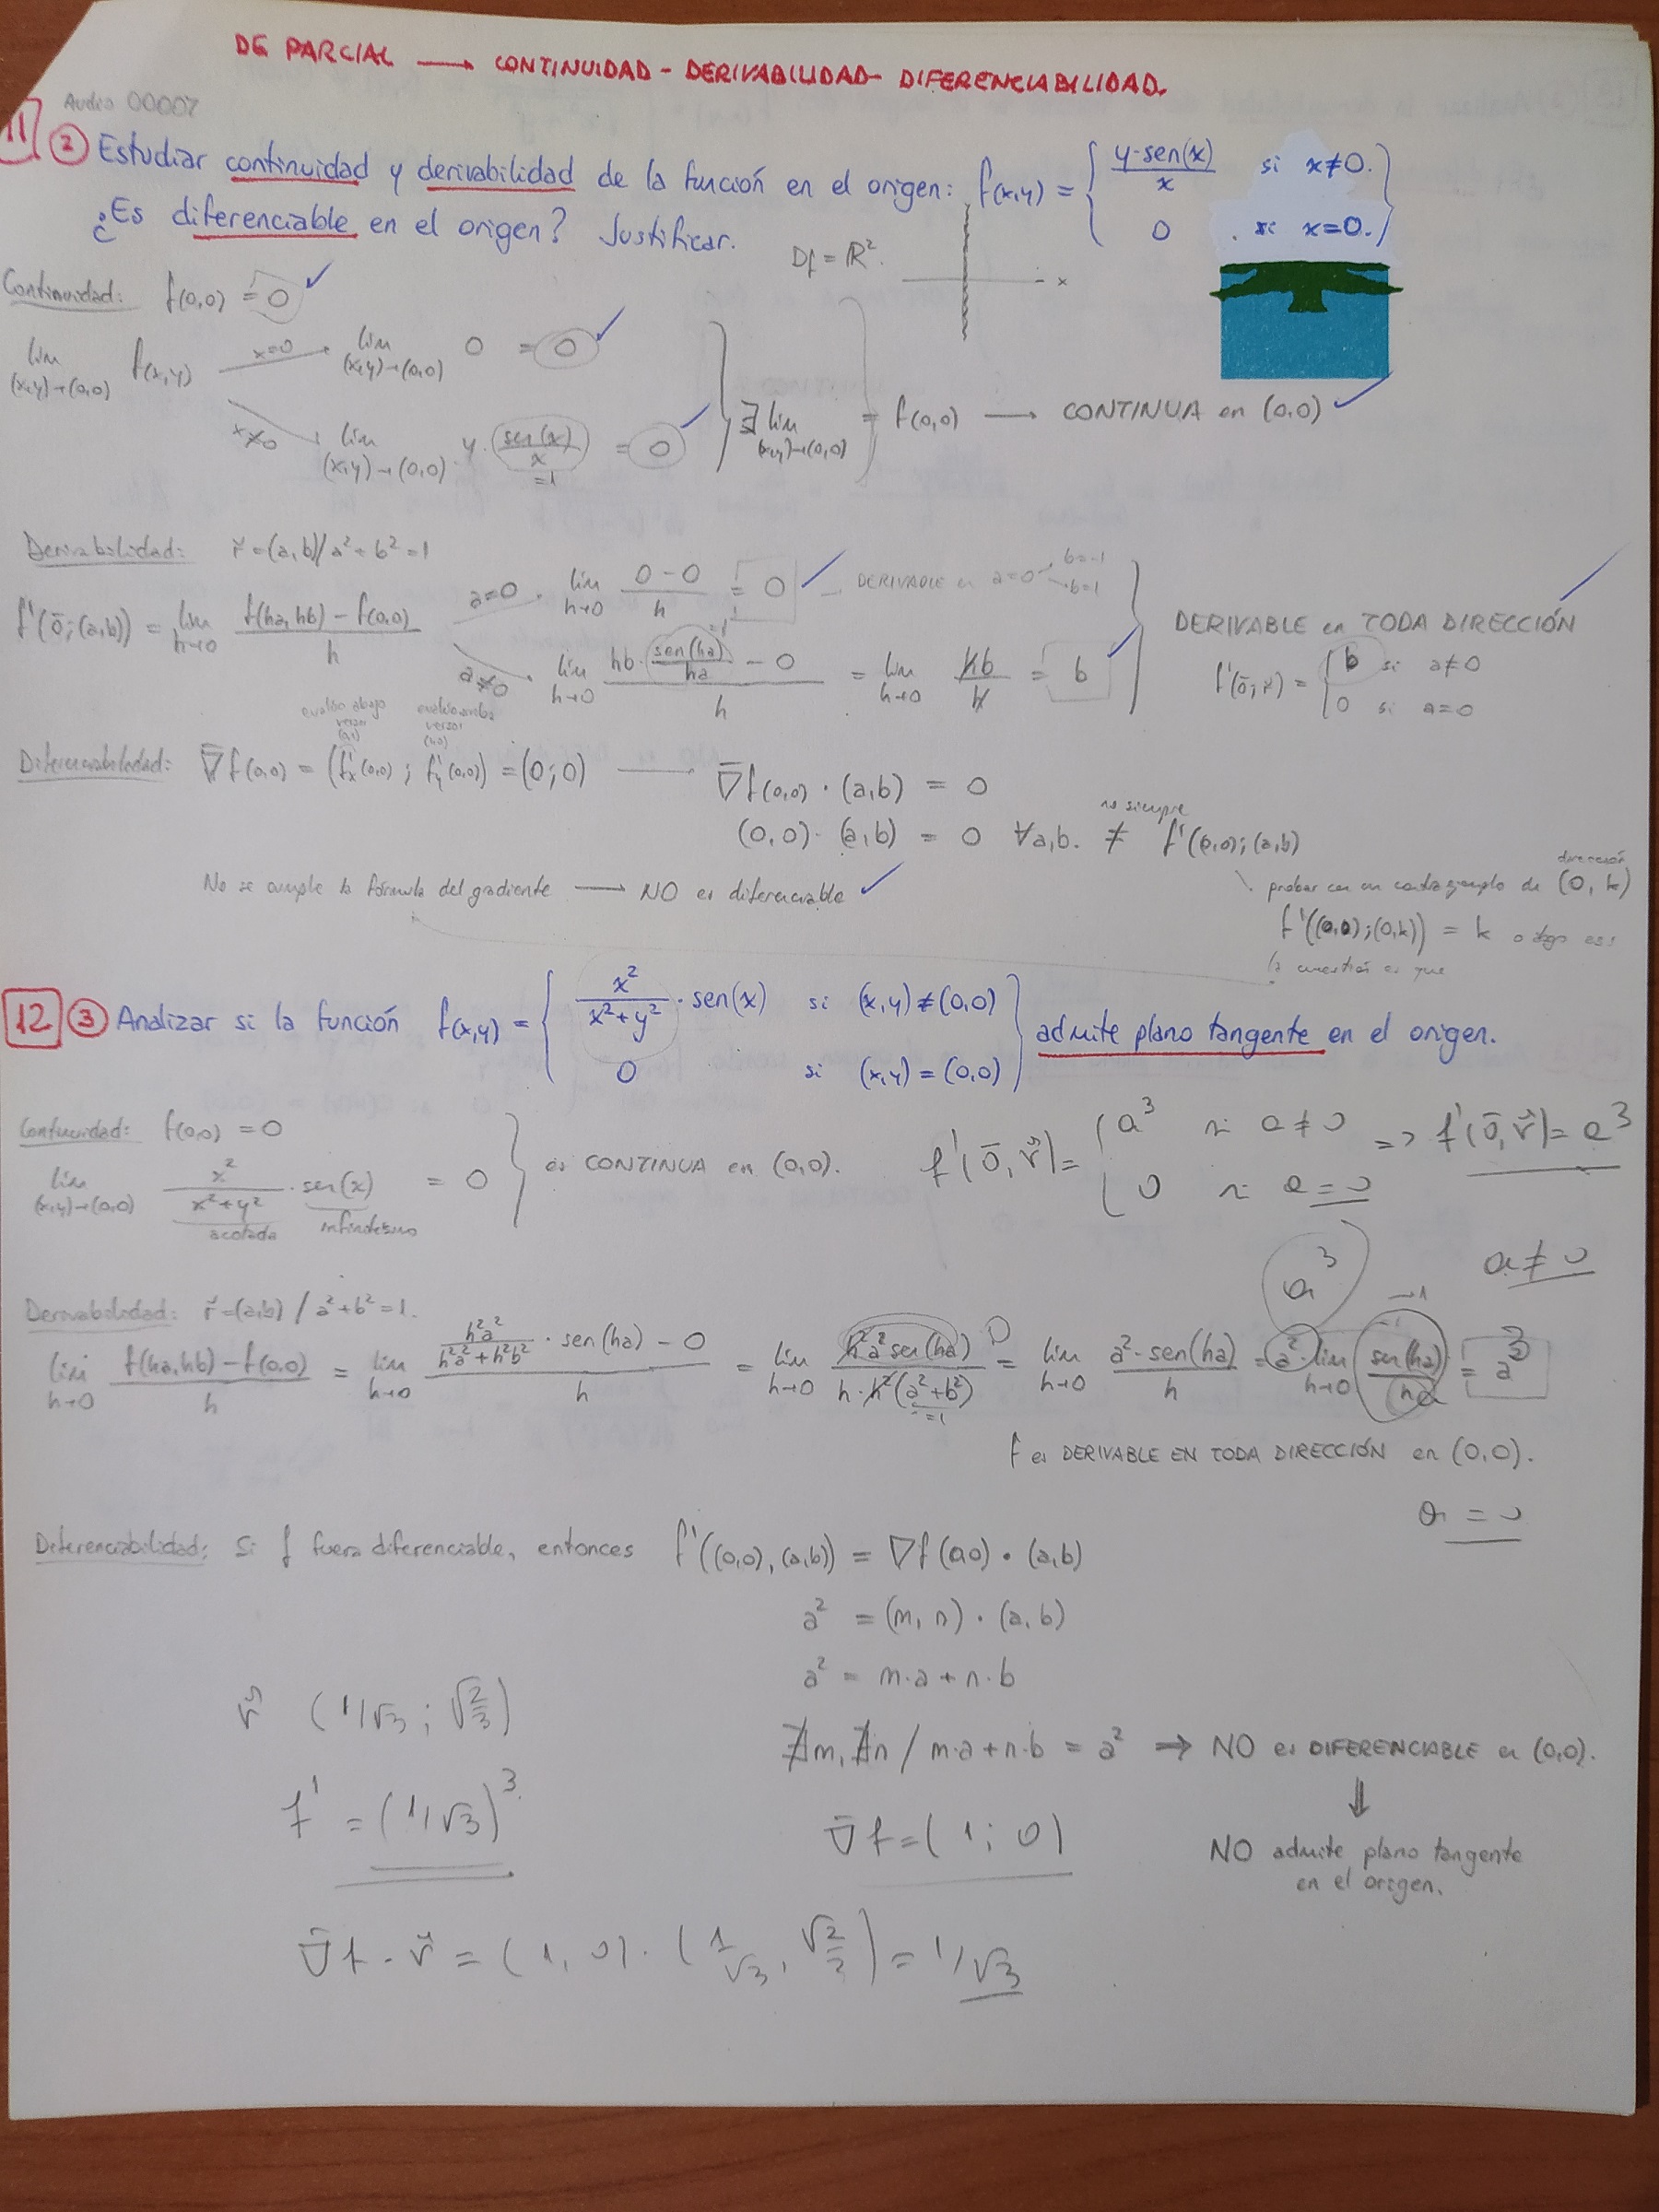 DE PARCIAL → CONTINUIDAD - DERIVABILIDAD - DIFERENCIABILIDAD.
Audio 00007
11 ② Estudiar continuidad y derivabilidad de la función en el origen: f(x,y) = { y·sen(x)/x si x≠0.
0 si x=0. }
¿Es diferenciable en el origen? Justificar.
Df = ℝ².
x
Continuidad: f(0,0) = 0 ✓
lim (x,y)→(0,0) f(x,y) x=0 → lim (x,y)→(0,0) 0 = 0 ✓
x≠0 → lim (x,y)→(0,0) y · sen(x)/x = 0 ✓
=1
∃ lim (x,y)→(0,0) = f(0,0) → CONTINUA en (0,0) ✓
Derivabilidad: ř = (a,b) / a² + b² = 1
f'(0̄; (a,b)) = lim h→0 (f(ha,hb) - f(0,0))/h
a=0 → lim h→0 (0-0)/h = 0 ✓ — DERIVABLE en a=0 b=-1 b=1
a≠0 → lim h→0 (hb · sen(ha)/ha - 0)/h = lim h→0 hb/h = b ✓
=1
DERIVABLE en TODA DIRECCIÓN ✓
f'(0̄; ř) = { b si a≠0
0 si a=0
evalúo abajo versor
evalúo arriba versor
Diferenciabilidad: ∇̄f(0,0) = (f'x(0,0) ; f'y(0,0)) = (0;0) → ∇̄f(0,0) · (a,b) = 0
(0,0) · (a,b) = 0 ∀a,b. ≠ f'(0,0);(a,b)
no siempre
No se cumple la fórmula del gradiente → NO es diferenciable ✓
probar con un contraejemplo de dirección (0,k)
f'((0,0);(0,k)) = k o algo así
la cuestión es que
12 ③ Analizar si la función f(x,y) = { x²/(x²+y²) · sen(x) si (x,y)≠(0,0)
0 si (x,y)=(0,0) } admite plano tangente en el origen.
Continuidad: f(0,0) = 0
lim (x,y)→(0,0) x²/(x²+y²) · sen(x) = 0
acotada infinitésimo
es CONTINUA en (0,0).
f'(0̄, ř) = { a³ si a≠0
0 si a=0 => f'(0̄, ř) = a³
a³
a≠0
Derivabilidad: ř = (a,b) / a² + b² = 1.
lim h→0 (f(ha,hb) - f(0,0))/h = lim h→0 (h²a²/(h²a²+h²b²) · sen(ha) - 0)/h = lim h→0 h²a² sen(ha)/(h·h²(a²+b²)) = lim h→0 a²·sen(ha)/h = a² · lim h→0 sen(ha)/ha = a³
=1
→1
f es DERIVABLE EN TODA DIRECCIÓN en (0,0).
a=0
Diferenciabilidad: Si f fuera diferenciable, entonces f'((0,0),(a,b)) = ∇f(0,0) · (a,b)
a² = (m,n) · (a,b)
a² = m·a + n·b
ř (1/√3 ; √2/3)
∄m, ∄n / m·a + n·b = a² ⇒ NO es DIFERENCIABLE en (0,0).
⇓
f' = (1/√3)³
∇̄f = (1; 0)
NO admite plano tangente
en el origen.
∇̄f · ř = (1,0) · (1/√3, √2/3) = 1/√3